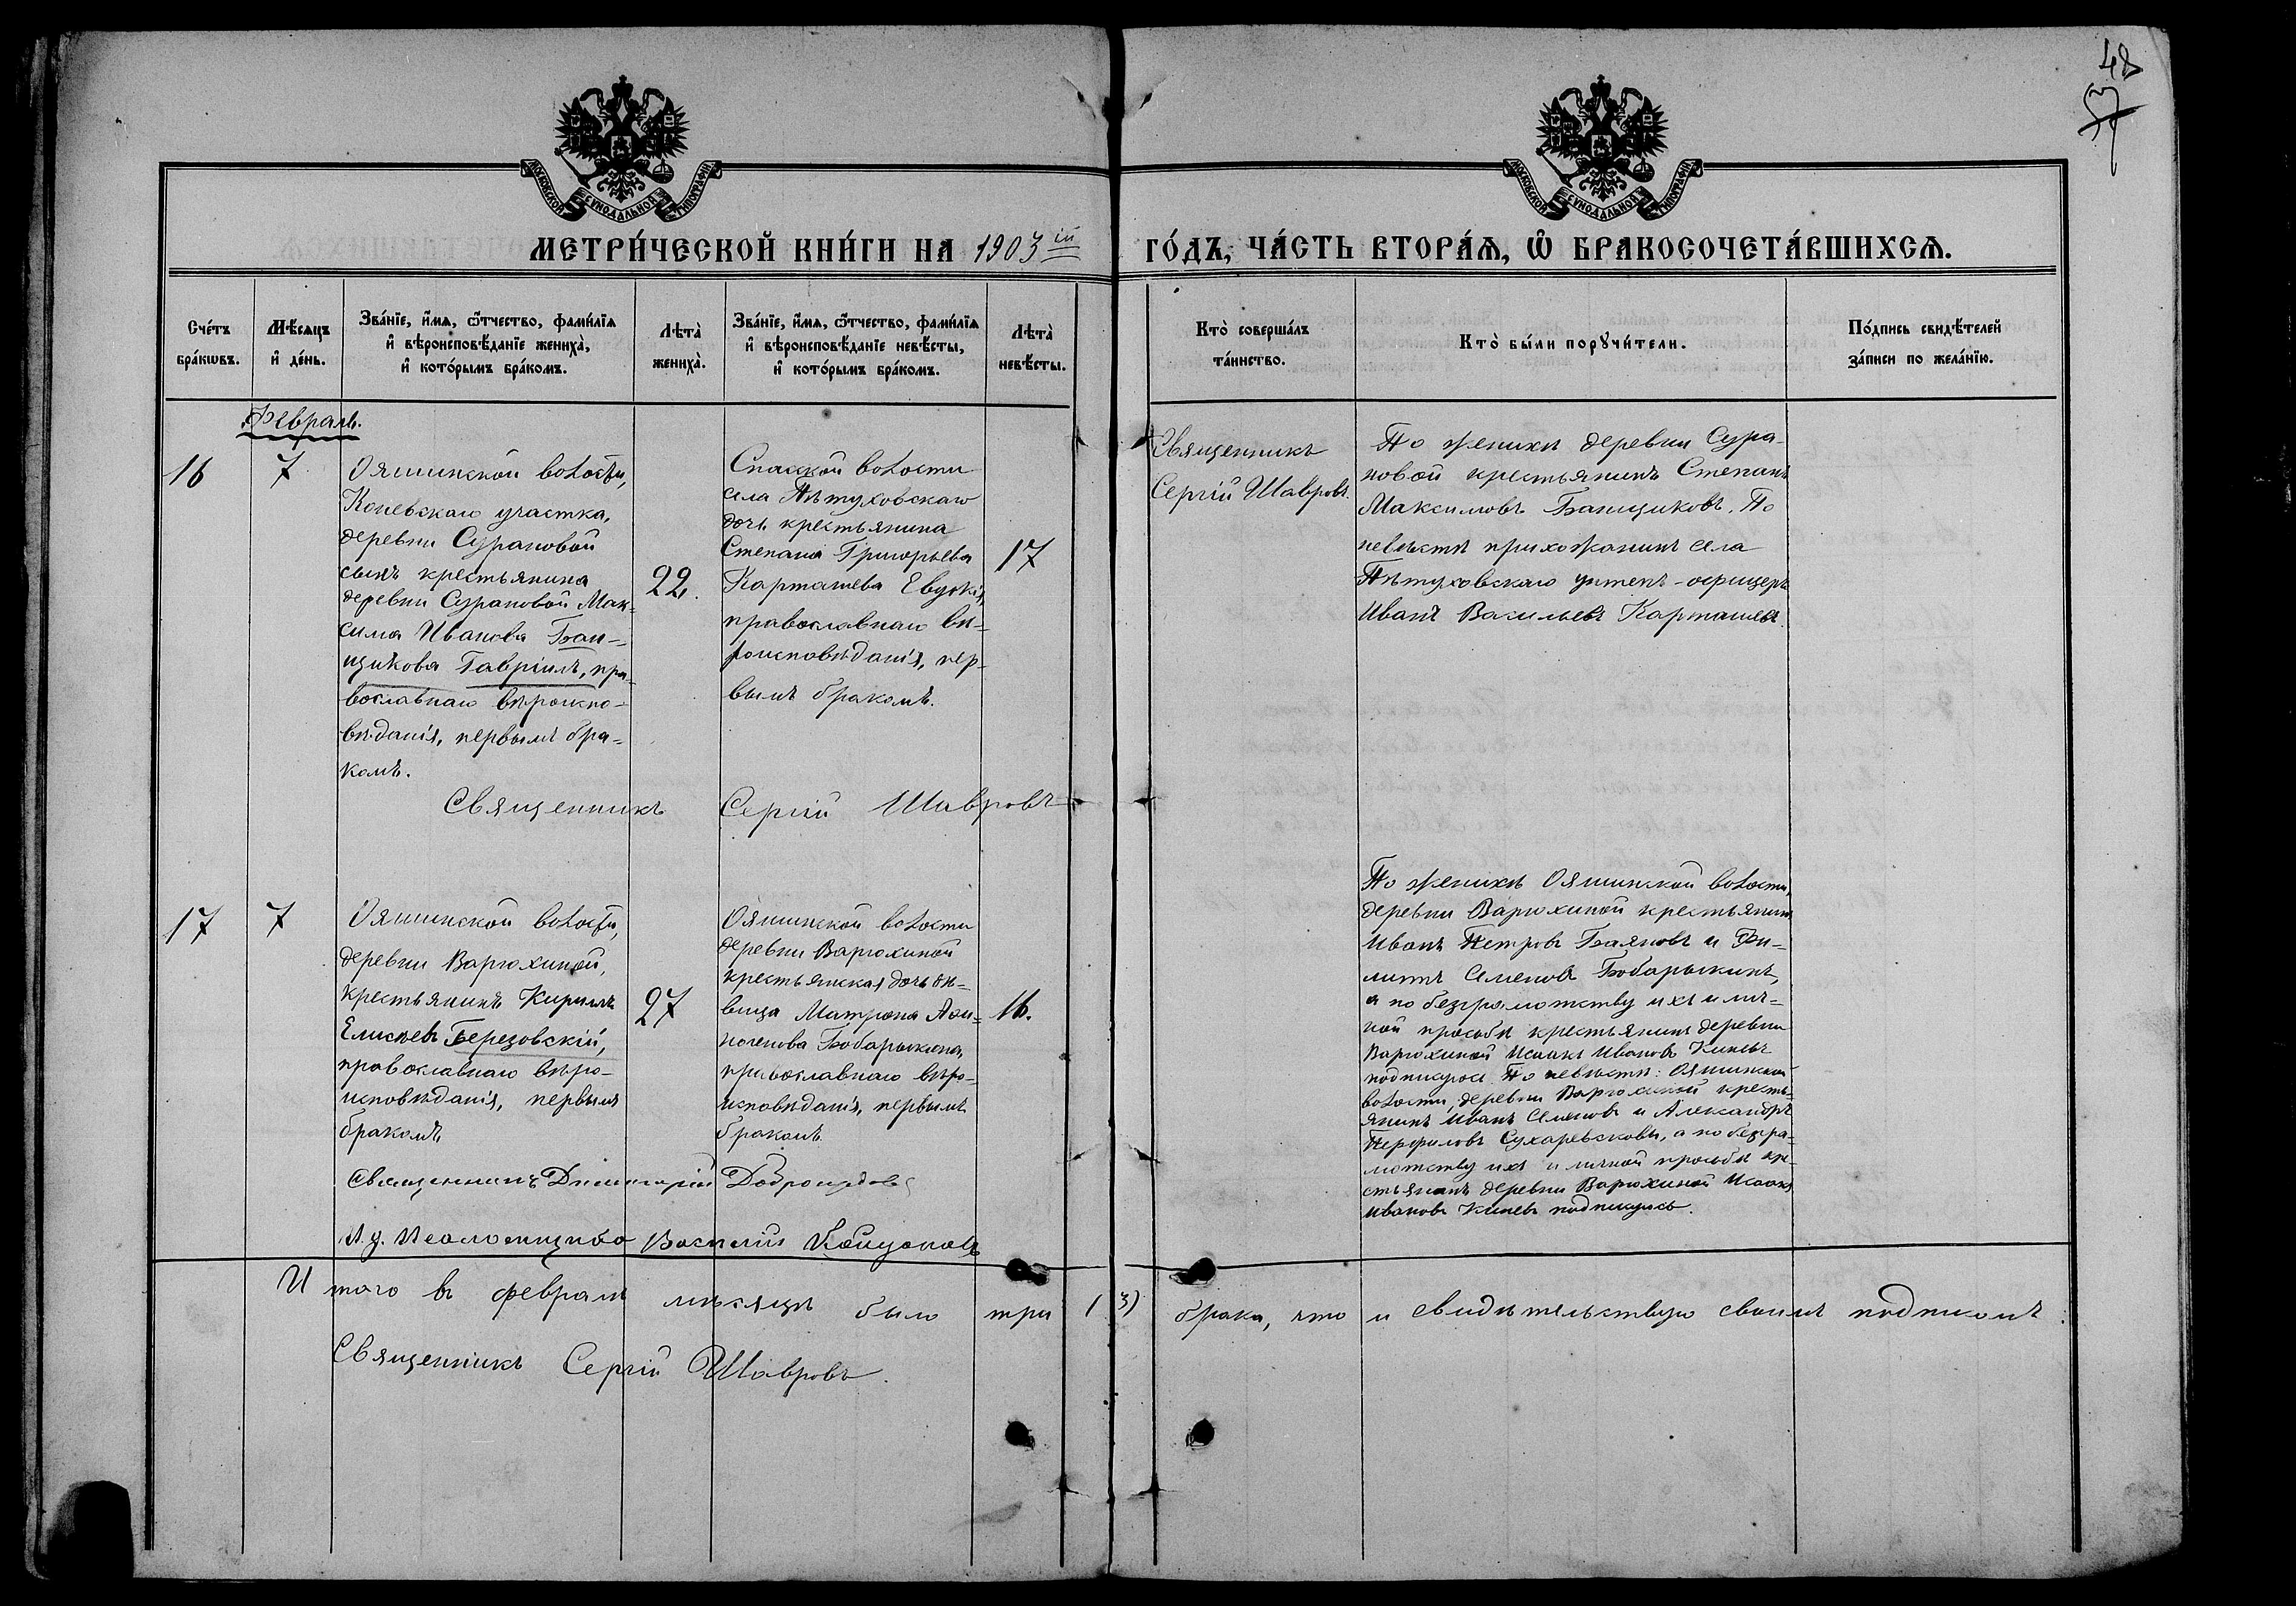 48
57
МОСКОВСКОЙ СѴНОДАЛЬНОЙ ТИПОГРАФІИ
МОСКОВСКОЙ СѴНОДАЛЬНОЙ ТИПОГРАФІИ
МЕТРИ́ЧЕСКОЙ КНИ́ГИ НА 1903ій ГО́ДЪ, ЧА́СТЬ ВТОРА́Ѧ, Ѽ БРАКОСОЧЕТА́ВШИХСѦ.
Сче́тъ
бра́кѡвъ.
Мѣ́сѧцъ
и҆ де́нь.
Зва́нїе, и҆́мѧ, ѻ҆́тчество, фами́лїѧ
и҆ вѣроисповѣ́данїе жениха̀,
и҆ кото́рымъ бра́комъ.
Лѣта̀
жениха̀.
Зва́нїе, и҆́мѧ, ѻ҆́тчество, фами́лїѧ
и҆ вѣроисповѣ́данїе невѣ́сты,
и҆ кото́рымъ бра́комъ.
Лѣта̀
невѣ́сты.
Кто̀ соверша́лъ
та́инство.
Кто̀ бы́ли порꙋчи́тели.
По́дпись свидѣ́телей
за́писи по жела́нїю.
Февраль.
16
7
Ояшинской волости,
Коневскаго участка,
деревни Сурановой
сынъ крестьянина
деревни Сурановой Мак-
сима Иванова Бан-
щикова Гавріилъ, пра-
вославнаго вѣроиспо-
вѣданія, первымъ бра-
комъ.
22.
Спаской волости
села Пѣтуховскаго
дочь крестьянина
Степана Григорьева
Карташева Евдокія,
православнаго вѣ-
роисповѣданія, пер-
вымъ бракомъ.
17
Священникъ
Сергій Шавровъ.
По женихѣ деревни Сура-
новой крестьянинъ Степанъ
Максимовъ Банщиковъ. По
невѣстѣ прихожанинъ села
Пѣтуховскаго унтеръ-офицеръ
Иванъ Васильевъ Карташевъ.
Священникъ Сергій Шавровъ
17
7
Ояшинской волости,
деревни Варюхиной,
крестьянинъ Кириллъ
Елисѣевъ Березовскій,
православнаго вѣро-
исповѣданія, первымъ
бракомъ
27
Ояшинской волости
деревни Варюхиной
крестьянская дочь дѣ-
вица Матрона
Бобарыкина,
православнаго вѣро-
исповѣданія, первымъ
бракомъ.
16.
По женихѣ Ояшинской волости,
деревни Варюхиной крестьянинъ
Иванъ Петровъ Баяновъ и Фи-
липпъ Семеновъ Бобарыкинъ,
а по безграмотству ихъ и лич-
ной просьбѣ крестьянинъ деревни
Варюхиной Исаакъ Ивановъ Киневъ
подписуюсь. По невѣстѣ: Ояшинской
волости, деревни Варюхиной кресть-
янинъ Иванъ Семеновъ и Александръ
Перфиловъ Сухаревсковы, а по безгра-
мотству ихъ и личной просьбѣ кре-
стьянинъ деревни Варюхиной Исаакъ
Ивановъ Киневъ подписуюсь.
Священникъ Димитрій
И. д. Псаломщика Василій
Итого въ февралѣ мѣсяцѣ было три (3) брака, что и свидѣтельствую своимъ подписомъ.
Священникъ Сергій Шавровъ.